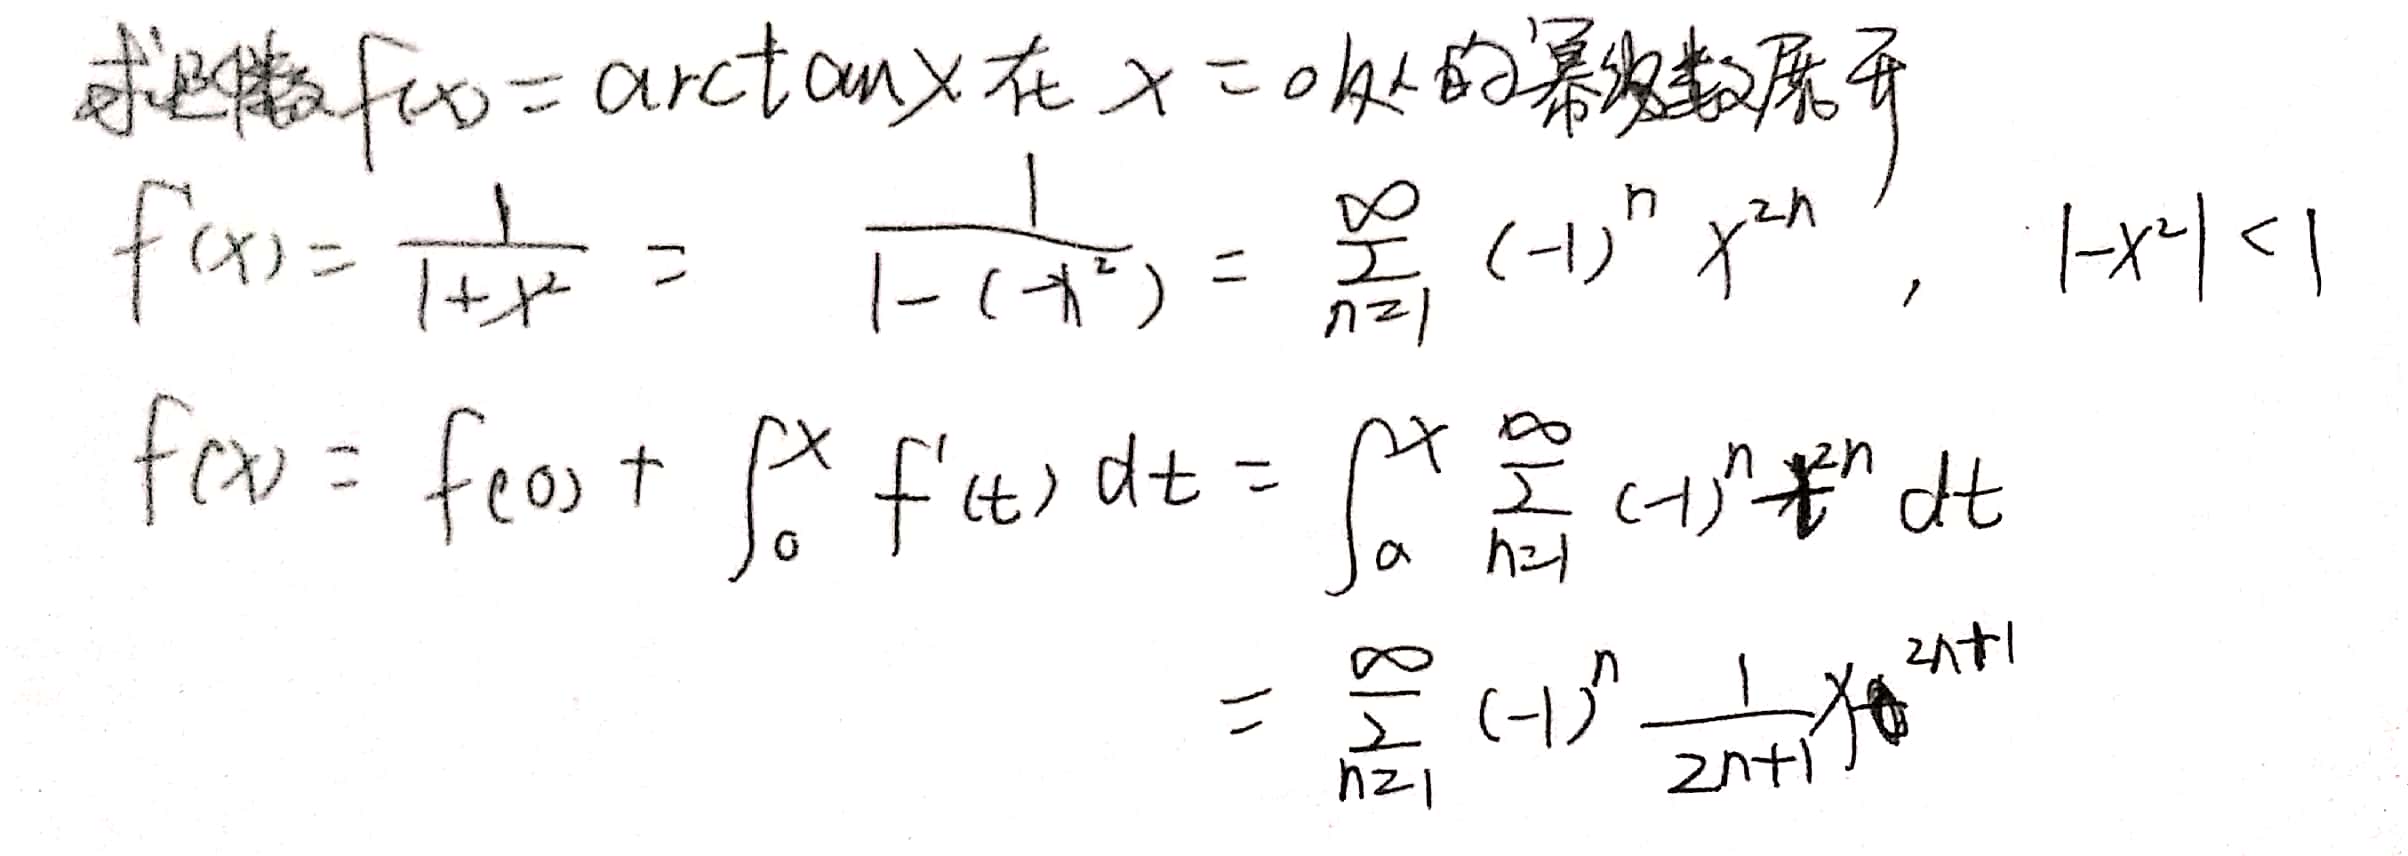 求函数f(x)=arctanx在x=0处的幂级数展开
f'(x)=\frac{1}{1+x^2}=\frac{1}{1-(-x^2)}=\sum_{n=1}^{∞}(-1)^n x^{2n}, |-x^2|<1
f(x)=f(0)+\int_0^x f'(t)dt=\int_a^x \sum_{n=1}^{∞}(-1)^n t^{2n}dt
=\sum_{n=1}^{∞}(-1)^n \frac{1}{2n+1}x^{2n+1}